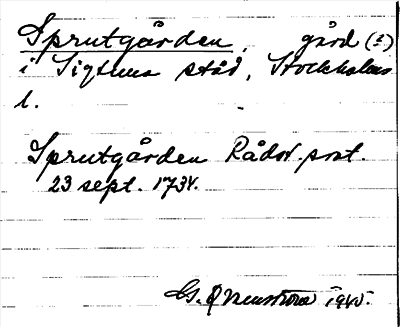 Sprutgården, gård (?)
i Sigtuna stad, Stockholms
l.
Sprutgården Rådst. prot.
23 sept. 1734.
G. 1945.